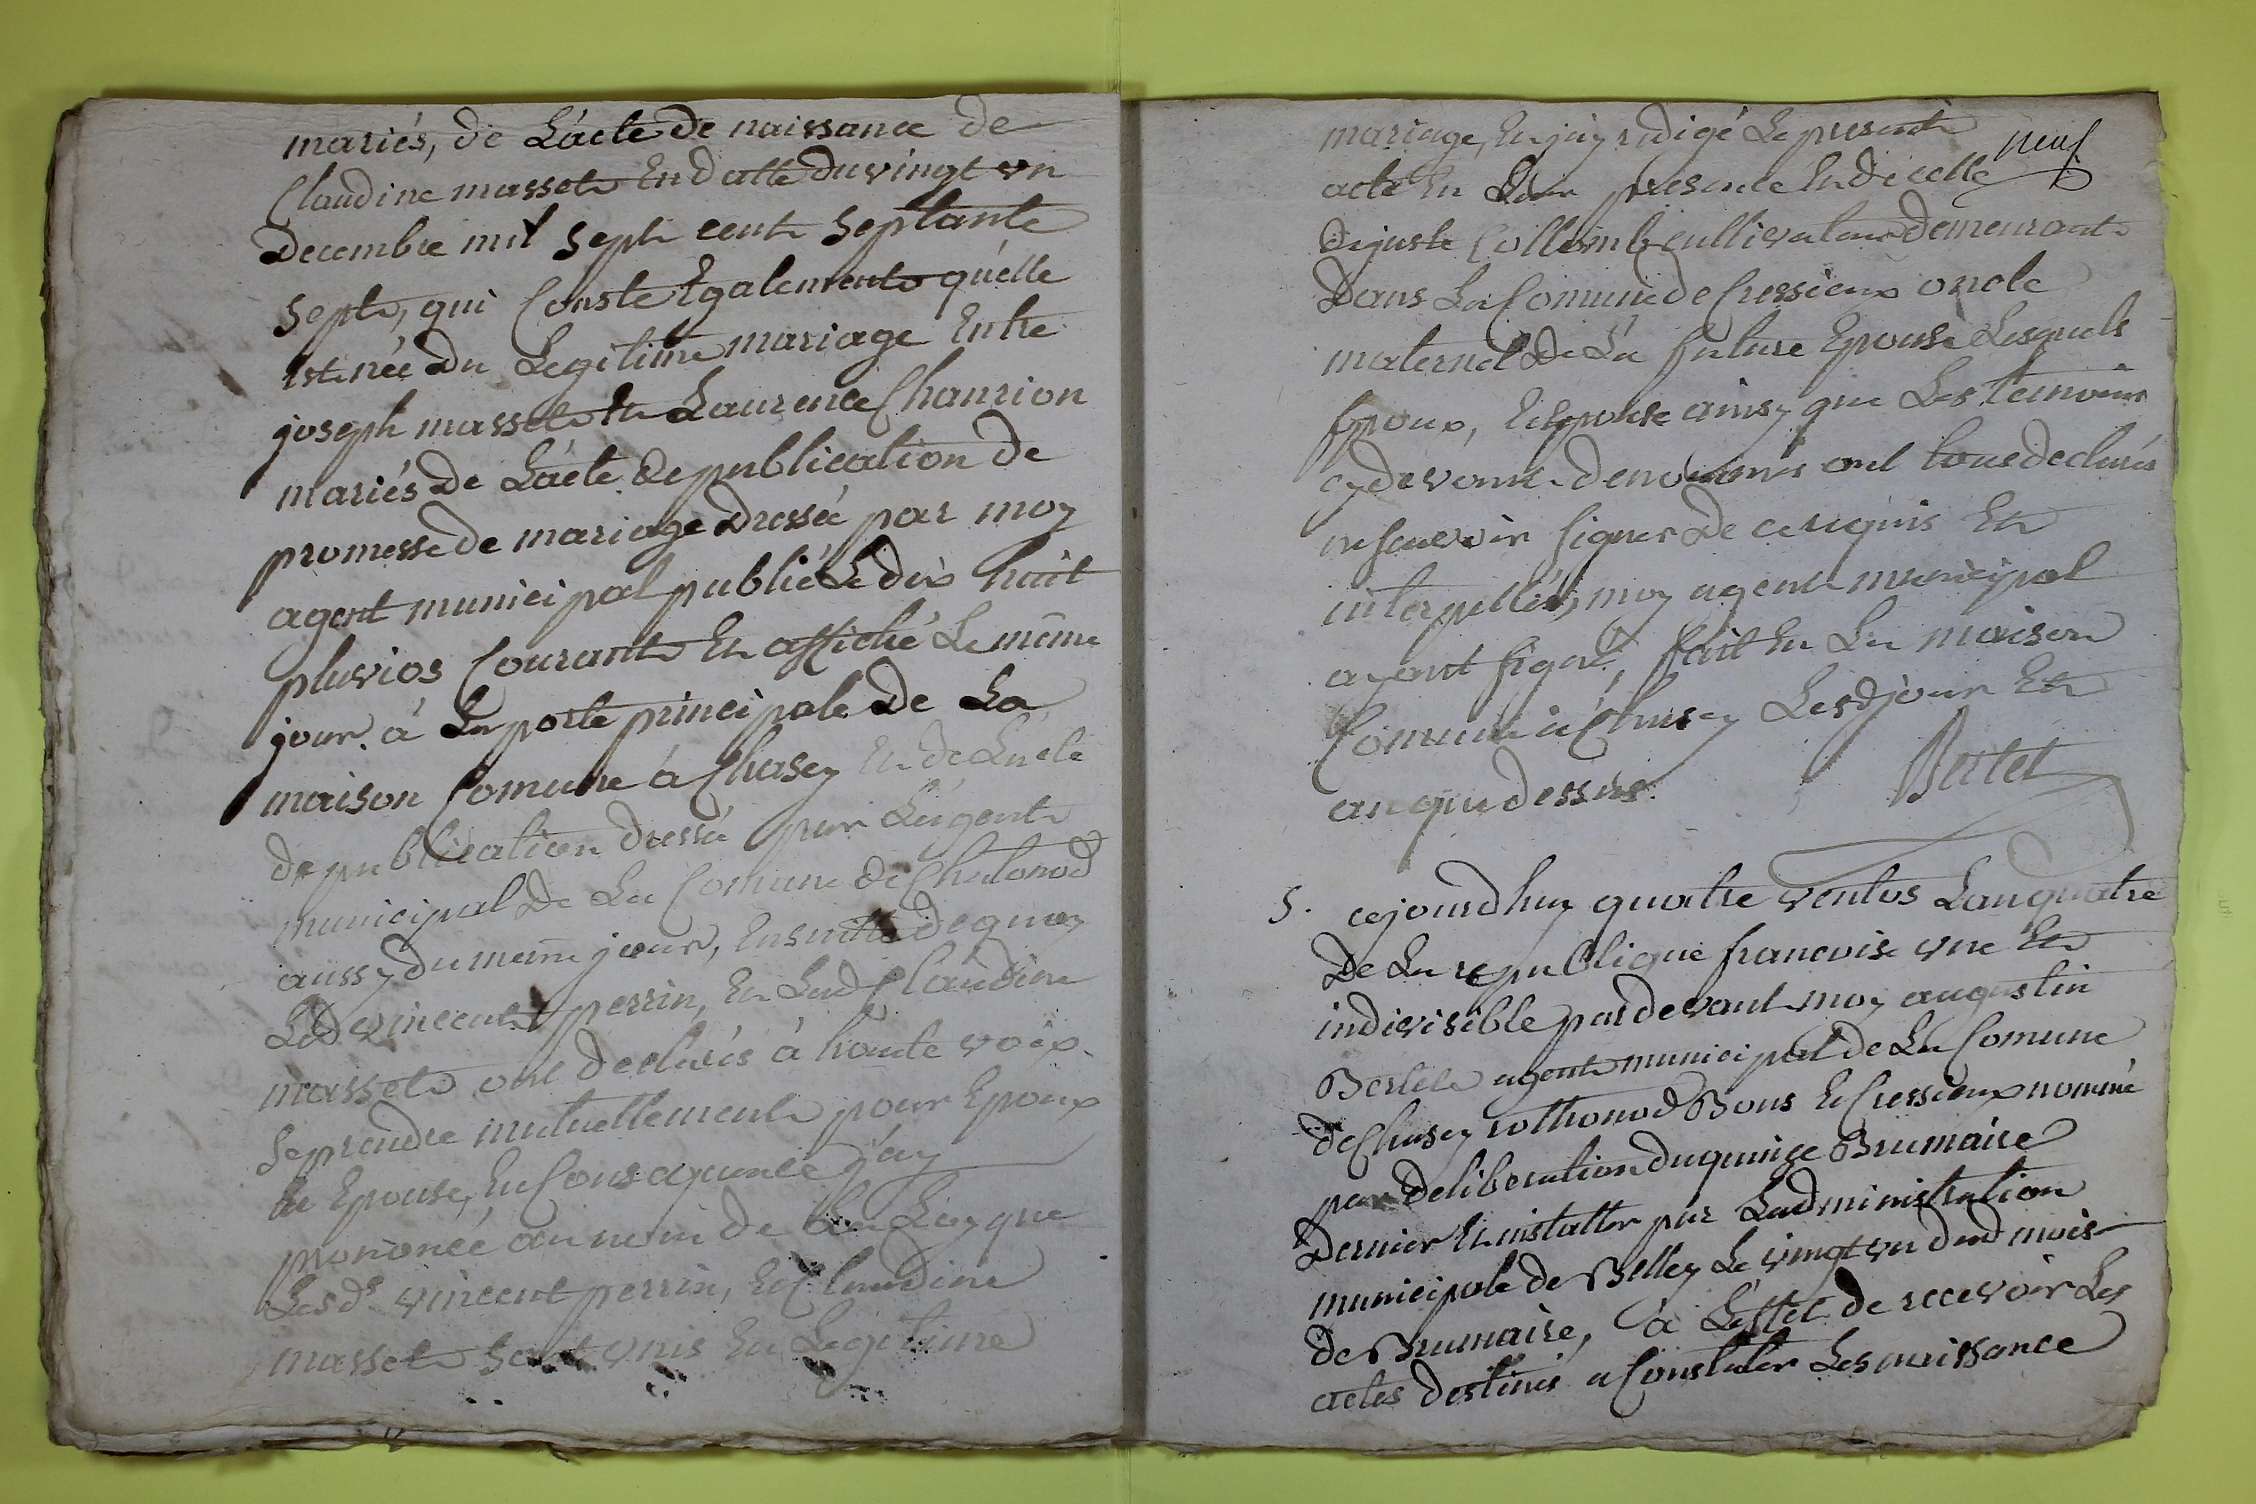 mariés, de L'acte de naissance de
Claudine masset En datte du vingt un
Decembre mil Sept cent Septante
Sept, qui Conste Egalement qu'elle
Est née Du Legitime mariage Entre
joseph masset Et Laurence Chanrion
mariés De L'acte de publication de
promesse de mariage Dressée par moy
agent municipal publiée Le dix huit
pluvios Courant Et affiché Le même
jour à La porte principale De La
maison Comune à Chasey Et de L'acte
de publication dressée par L'agent
municipal De La Comune de Chatonod
aussy du meme jour, Ensuitte de quoy
Led vincent perrin, Et Lad Claudine
masset ont declarés à haute voix
Se prendre mutuellement pour Epoux
Et Epouse, En Consequence j'ay
prononcé au nom de La Loy que
Lesds vincent perrin, Et Claudine
masset Sont unis En Legitime
neuf
mariage, Et j'ay redigé Le present
acte En Leur presence Et de celle
De juste Collomb cultivateur Demeurant
Dans La Comune de Cressieux oncle
maternel De La future Epouse Lesquels
Epoux, Et Epouse ainsy que Les temoins
cy devant denommés ont tous declarés
ne sçavoir signer De ce requis Et
interpellés, moy agent municipal
ayant signé, fait En La maison
Comune à Chasey Lesd jour Et
an que dessus.
Bertet
5. cejourdhuy quatre ventos L'an quatre
De La republique francoise une Et
indivisible pardevant moy augustin
Bertet agent municipal de La Comune
de Chasey rothonod Bons Et Cressieux nommé
par deliberation du quinze Brumaire
Dernier Et installer par L'administration
municipale de Belley Le vingt un dud mois
de Brumaire, à L'effet de recevoir Les
actes destinés a Constater Les naissance